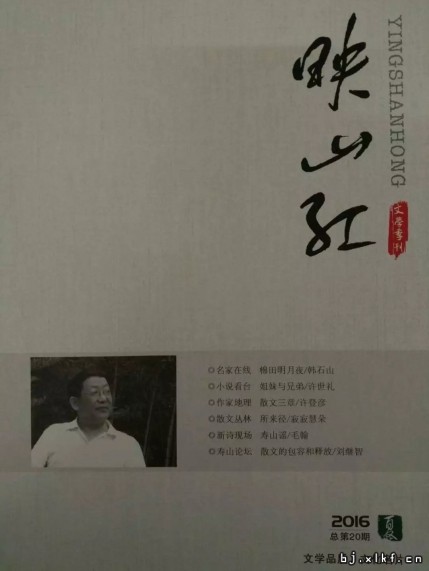 映山红
YINGSHANHONG
文学季刊
◎名家在线 棉田明月夜/韩石山
◎小说看台 姐妹与兄弟/许世礼
◎作家地理 散文三章/许登彦
◎散文丛林 所来径/寂寂竖朵
◎新诗现场 寿山谣/毛翰
◎寿山论坛 散文的包容和释放/刘继智
2016
夏
总第20期
文学品
bj.xlkf.cn